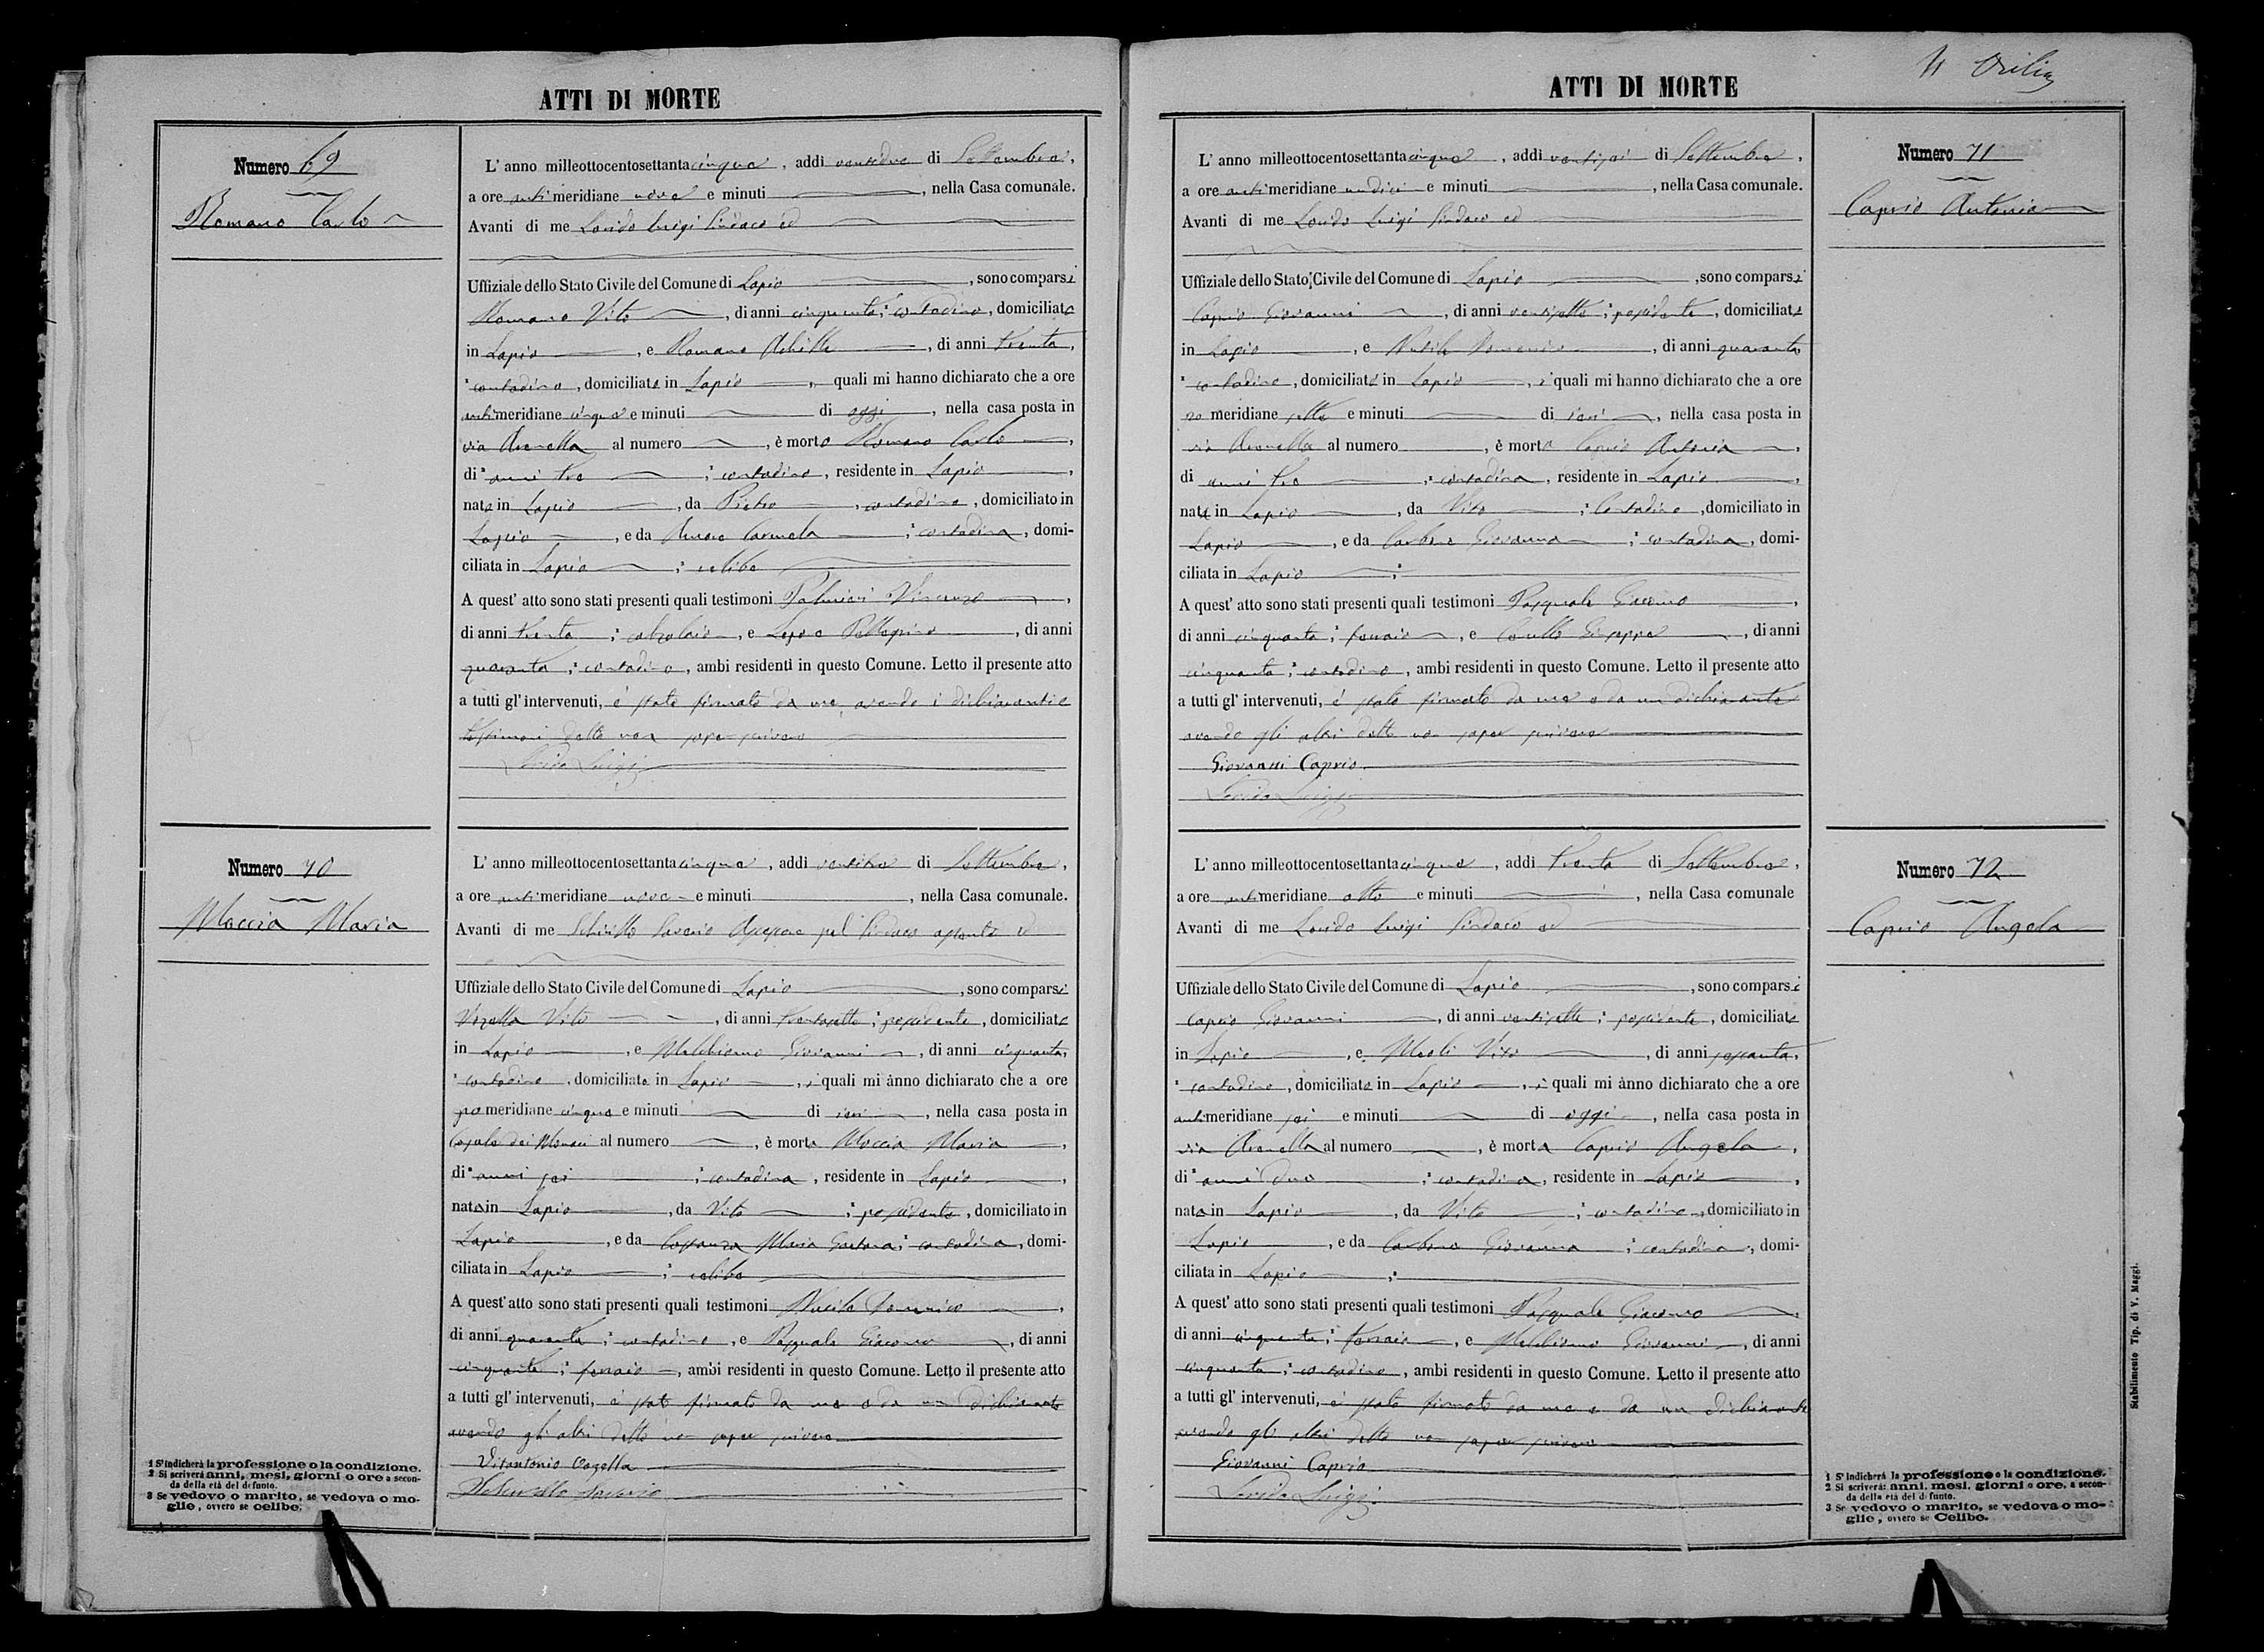 ATTI DI MORTE
Numero 69
Romano Carlo
L' anno milleottocentosettantacinque, addì ventidue di Settembre,
a ore antimeridiane nove e minuti , nella Casa comunale.
Avanti di me Luigi Sindaco ed
Uffiziale dello Stato Civile del Comune di Lapio , sono comparsi
Romano Vito , di anni cinquanta; contadino, domiciliato
in Lapio , e Romano Achille , di anni trenta,
contadino, domiciliato in Lapio , quali mi hanno dichiarato che a ore
antimeridiane cinque e minuti di oggi , nella casa posta in
via Arenella al numero , è morto Romano Carlo ,
di anni tre ; contadino, residente in Lapio ,
nato in Lapio , da Pietro , contadino, domiciliato in
Lapio , e da Carmela ; contadina, domi-
ciliata in Lapio ; celibe
A quest' atto sono stati presenti quali testimoni Palmieri Vincenzo ,
di anni trenta ; calzolaio , e Pellegrino , di anni
quaranta ; contadino, ambi residenti in questo Comune. Letto il presente atto
a tutti gl' intervenuti, è stato firmato da me, avendo i dichiaranti e
testimoni detto non saper scrivere
Luigi
Numero 70
Moccia Maria
L' anno milleottocentosettantacinque, addì ventitre di Settembre,
a ore antimeridiane nove e minuti , nella Casa comunale.
Avanti di me Saverio Assessore pel Sindaco assente ed
Uffiziale dello Stato Civile del Comune di Lapio , sono comparsi
Vozella Vito , di anni trentasette; possidente, domiciliato
in Lapio , e Melchionno Giovanni , di anni cinquanta,
contadino, domiciliato in Lapio , i quali mi ànno dichiarato che a ore
pomeridiane cinque e minuti di ieri , nella casa posta in
Casale dei Monaci al numero , è morta Moccia Maria ,
di anni sei ; contadina, residente in Lapio ,
nata in Lapio , da Vito ; possidente, domiciliato in
Lapio , e da Costanza Maria Gaetana; contadina, domi-
ciliata in Lapio ; celibe
A quest' atto sono stati presenti quali testimoni Domenico ,
di anni quaranta; contadino, e Pasquale Giacomo , di anni
cinquanta; ferraio , ambi residenti in questo Comune. Letto il presente atto
a tutti gl' intervenuti, è stato firmato da me e da un dichiarante
avendo gli altri detto non saper scrivere
Vitantonio Vozella
Saverio
1 S'indicherà la professione o la condizione.
2 Si scriverà anni, mesi, giorni o ore a secon-
da della età del defunto.
3 Se vedovo o marito, se vedova o mo-
glie, ovvero se celibe.
ATTI DI MORTE
Numero 71
Caprio Antonia
L' anno milleottocentosettantacinque , addì ventisei di Settembre ,
a ore antimeridiane undici e minuti , nella Casa comunale.
Avanti di me Luigi Sindaco ed
Uffiziale dello Stato Civile del Comune di Lapio , sono comparsi
Caprio Giovanni , di anni ventisette; possidente, domiciliato
in Lapio , e Domenico , di anni quaranta,
contadino, domiciliato in Lapio , i quali mi hanno dichiarato che a ore
po meridiane sette e minuti di ieri , nella casa posta in
via Arenella al numero , è morta Caprio Antonia ,
di anni tre ; contadina, residente in Lapio ,
nata in Lapio , da Vito ; Contadino, domiciliato in
Lapio , e da Carbone Giovanna ; contadina, domi-
ciliata in Lapio ;
A quest' atto sono stati presenti quali testimoni Pasquale Giacomo ,
di anni cinquanta; ferraio , e Giuseppe , di anni
cinquanta; contadino, ambi residenti in questo Comune. Letto il presente atto
a tutti gl' intervenuti, è stato firmato da me e da un dichiarante
avendo gli altri detto non saper scrivere
Giovanni Caprio
Luigi
Numero 72
Caprio Angela
L' anno milleottocentosettantacinque , addì trenta di Settembre ,
a ore antimeridiane otto e minuti , nella Casa comunale
Avanti di me Luigi Sindaco ed
Uffiziale dello Stato Civile del Comune di Lapio , sono comparsi
Caprio Giovanni , di anni ventisette; possidente, domiciliato
in Lapio , e Meoli Vito , di anni sessanta,
contadino, domiciliato in Lapio , i quali mi ànno dichiarato che a ore
antimeridiane sei e minuti di oggi , nella casa posta in
via Arenella al numero , è morta Caprio Angela ,
di anni due ; contadina, residente in Lapio ,
nata in Lapio , da Vito ; contadino, domiciliato in
Lapio , e da Carbone Giovanna ; contadina, domi-
ciliata in Lapio ;
A quest' atto sono stati presenti quali testimoni Pasquale Giacomo ,
di anni cinquanta; ferraio , e Melchionno Giovanni , di anni
cinquanta; contadino, ambi residenti in questo Comune. Letto il presente atto
a tutti gl' intervenuti, è stato firmato da me e da un dichiarante
avendo gli altri detto non saper scrivere
Giovanni Caprio
Luigi
1 S'indicherà la professione o la condizione.
2 Si scriverà: anni, mesi, giorni o ore, a secon-
da della età del defunto.
3 Se vedovo o marito, se vedova o mo-
glie, ovvero se Celibe.
Stabilimento Tip. di V. Maggi.